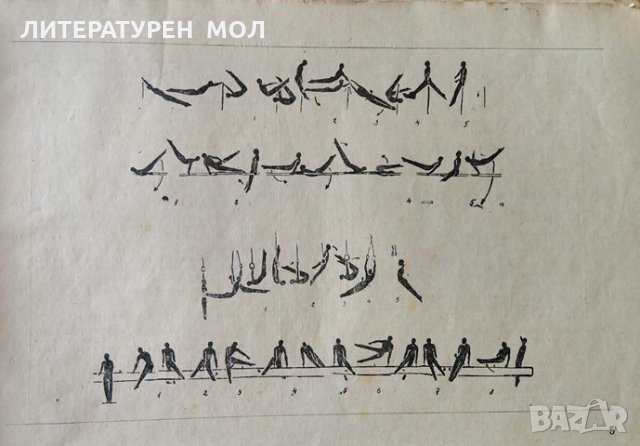 ЛИТЕРАТУРЕН МОЛ
1 2 3 4 5
1 2 4 5
1 2 3 4 5
1 2 3 4 5 6 7 8
BAZAR
5